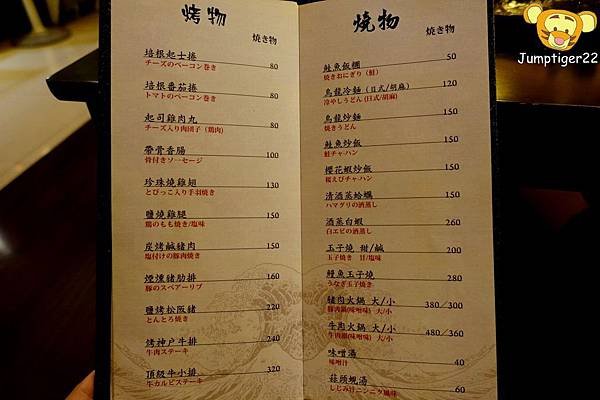 烤物
焼き物
培根起士捲
80
チーズのベーコン巻き
培根番茄捲
80
トマトのベーコン巻き
起司雞肉丸
80
チーズ入り肉団子(鶏肉)
帶骨香腸
100
骨付きソーセージ
珍珠燒雞翅
130
とびっこ入り手羽焼き
鹽燒雞腿
150
鶏のもも焼き/塩味
炭烤鹹豬肉
150
塩付けの豚肉焼き
煙燻豬肋排
160
豚のスペアーリブ
鹽烤松阪豬
220
とんとろ焼き
烤神戶牛排
240
牛肉ステーキ
頂級牛小排
320
牛カルビステーキ
燒物
焼き物
鮭魚飯糰
50
焼きおにぎり(鮭)
烏龍冷麵(日式/胡麻)
120
冷やしうどん(日式/胡麻)
烏龍炒麵
150
焼きうどん
鮭魚炒飯
150
鮭チャーハン
櫻花蝦炒飯
150
桜えびチャーハン
清酒蒸蛤蠣
150
ハマグリの酒蒸し
酒蒸白蝦
260
白エビの酒蒸し
玉子燒 甜/鹹
200
玉子焼き 甘/塩味
鰻魚玉子燒
280
うなぎ玉子焼き
豬肉火鍋 大/小
380/300
豚肉鍋(味噌味) 大/小
牛肉火鍋 大/小
480/360
牛肉鍋(味噌味) 大/小
味噌湯
40
味噌汁
蒜頭蜆湯
60
しじみ汁ニンニク風味
Jumptiger22